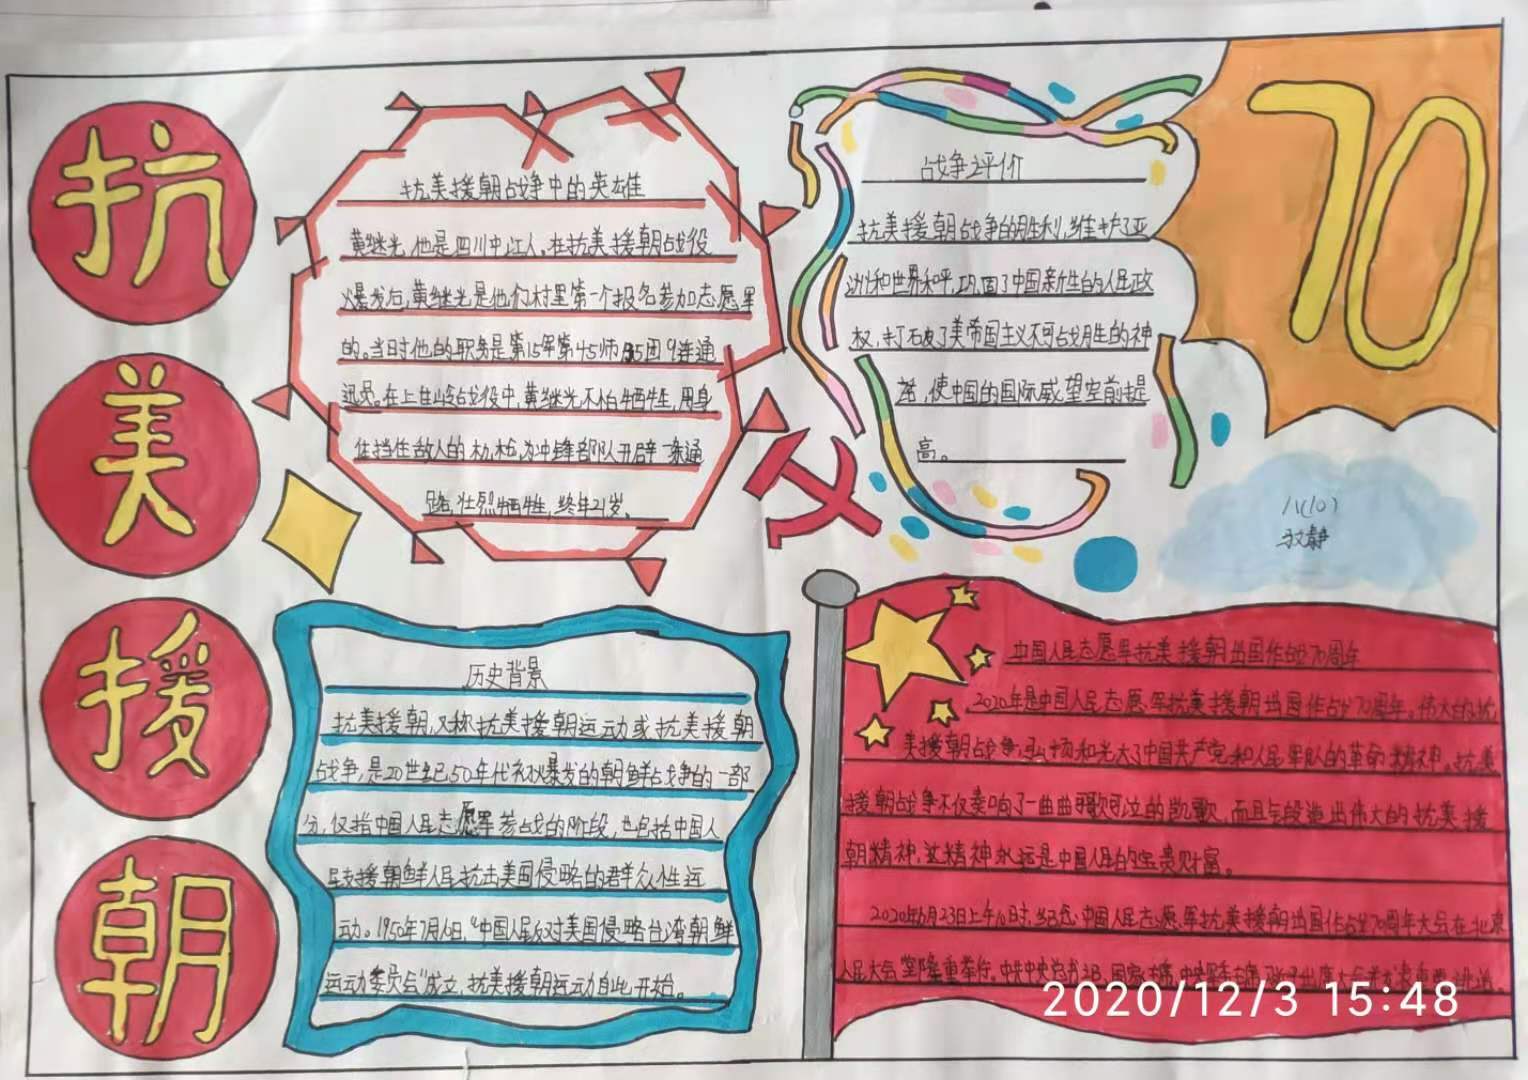 抗
美
援
朝
抗美援朝战争中的英雄
黄继光,他是四川中江人。在抗美援朝战役
爆发后,黄继光是他们村里第一个报名参加志愿军
的。当时他的职务是第15军第45师135团9连通
迅员。在上甘岭战役中,黄继光不怕牺牲,用身
体挡住敌人的机枪,为冲锋部队开辟一条通
路,壮烈牺牲,终年21岁。
战争评价
抗美援朝战争的胜利,维护了亚
洲和世界和平,巩固了中国新生的人民政
权,打破了美帝国主义不可战胜的神
话,使中国的国际威望空前提
高。
70
八(10)
静
历史背景
抗美援朝,又称抗美援朝运动或抗美援朝
战争,是20世纪50年代初爆发的朝鲜战争的一部
分,仅指中国人民志愿军参战的阶段,也包括中国人
民支援朝鲜人民抗击美国侵略的群众性运
动。1950年7月10日,“中国人民反对美国侵略台湾朝鲜
运动委员会”成立,抗美援朝运动自此开始。
中国人民志愿军抗美援朝出国作战70周年
2020年是中国人民志愿军抗美援朝出国作战70周年。伟大的抗
美援朝战争,弘扬和光大了中国共产党和人民军队的革命精神。抗美
援朝战争不仅奏响了一曲曲可歌可泣的凯歌,而且锻造出伟大的抗美援
朝精神,这精神永远是中国人民的宝贵财富。
2020年 月23日上午10时,纪念中国人民志愿军抗美援朝出国作战70周年大会在北京
人民大会堂隆重举行。中共中央总书记、国家主席、中央军委主席 出席大会并发表重要讲话。
2020/12/3 15:48